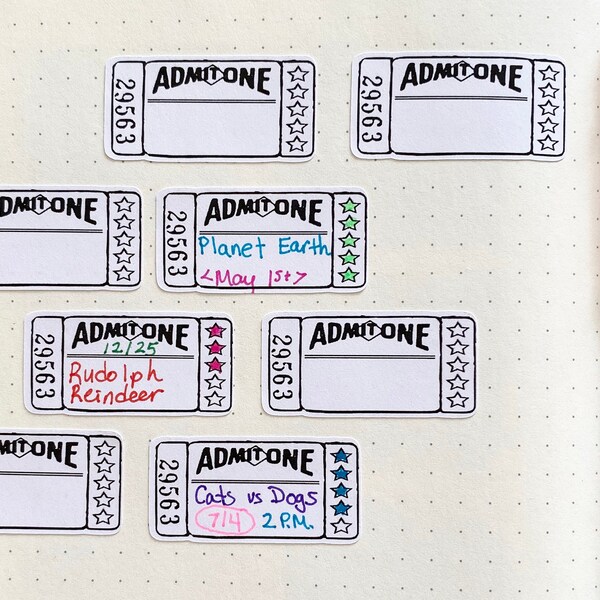 ADMIT ONE
29563
ADMIT ONE
29563
DMIT ONE
ADMIT ONE
29563
Planet Earth
<May 1st>
ADMIT ONE
29563
12/25
Rudolph
Reindeer
ADMIT ONE
29563
MIT ONE
ADMIT ONE
29563
Cats vs Dogs
7/4 2 P.M.